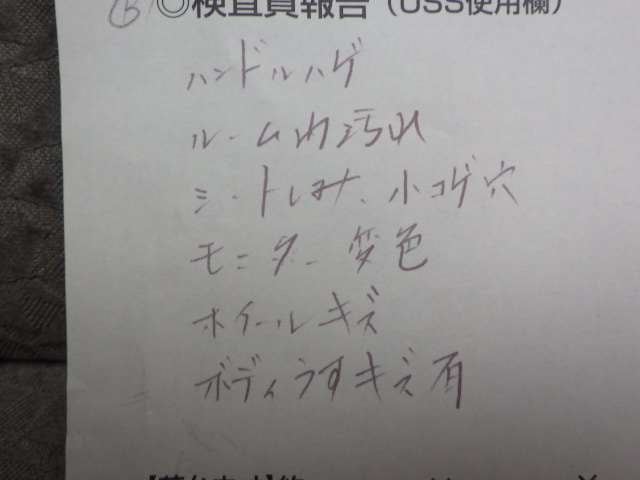 ◎検査員報告（USS使用欄）
ハンドルハゲ
ルーム内汚れ
シートしみ、小コゲ穴
モニター変色
ホイールキズ
ボディうすキズ有